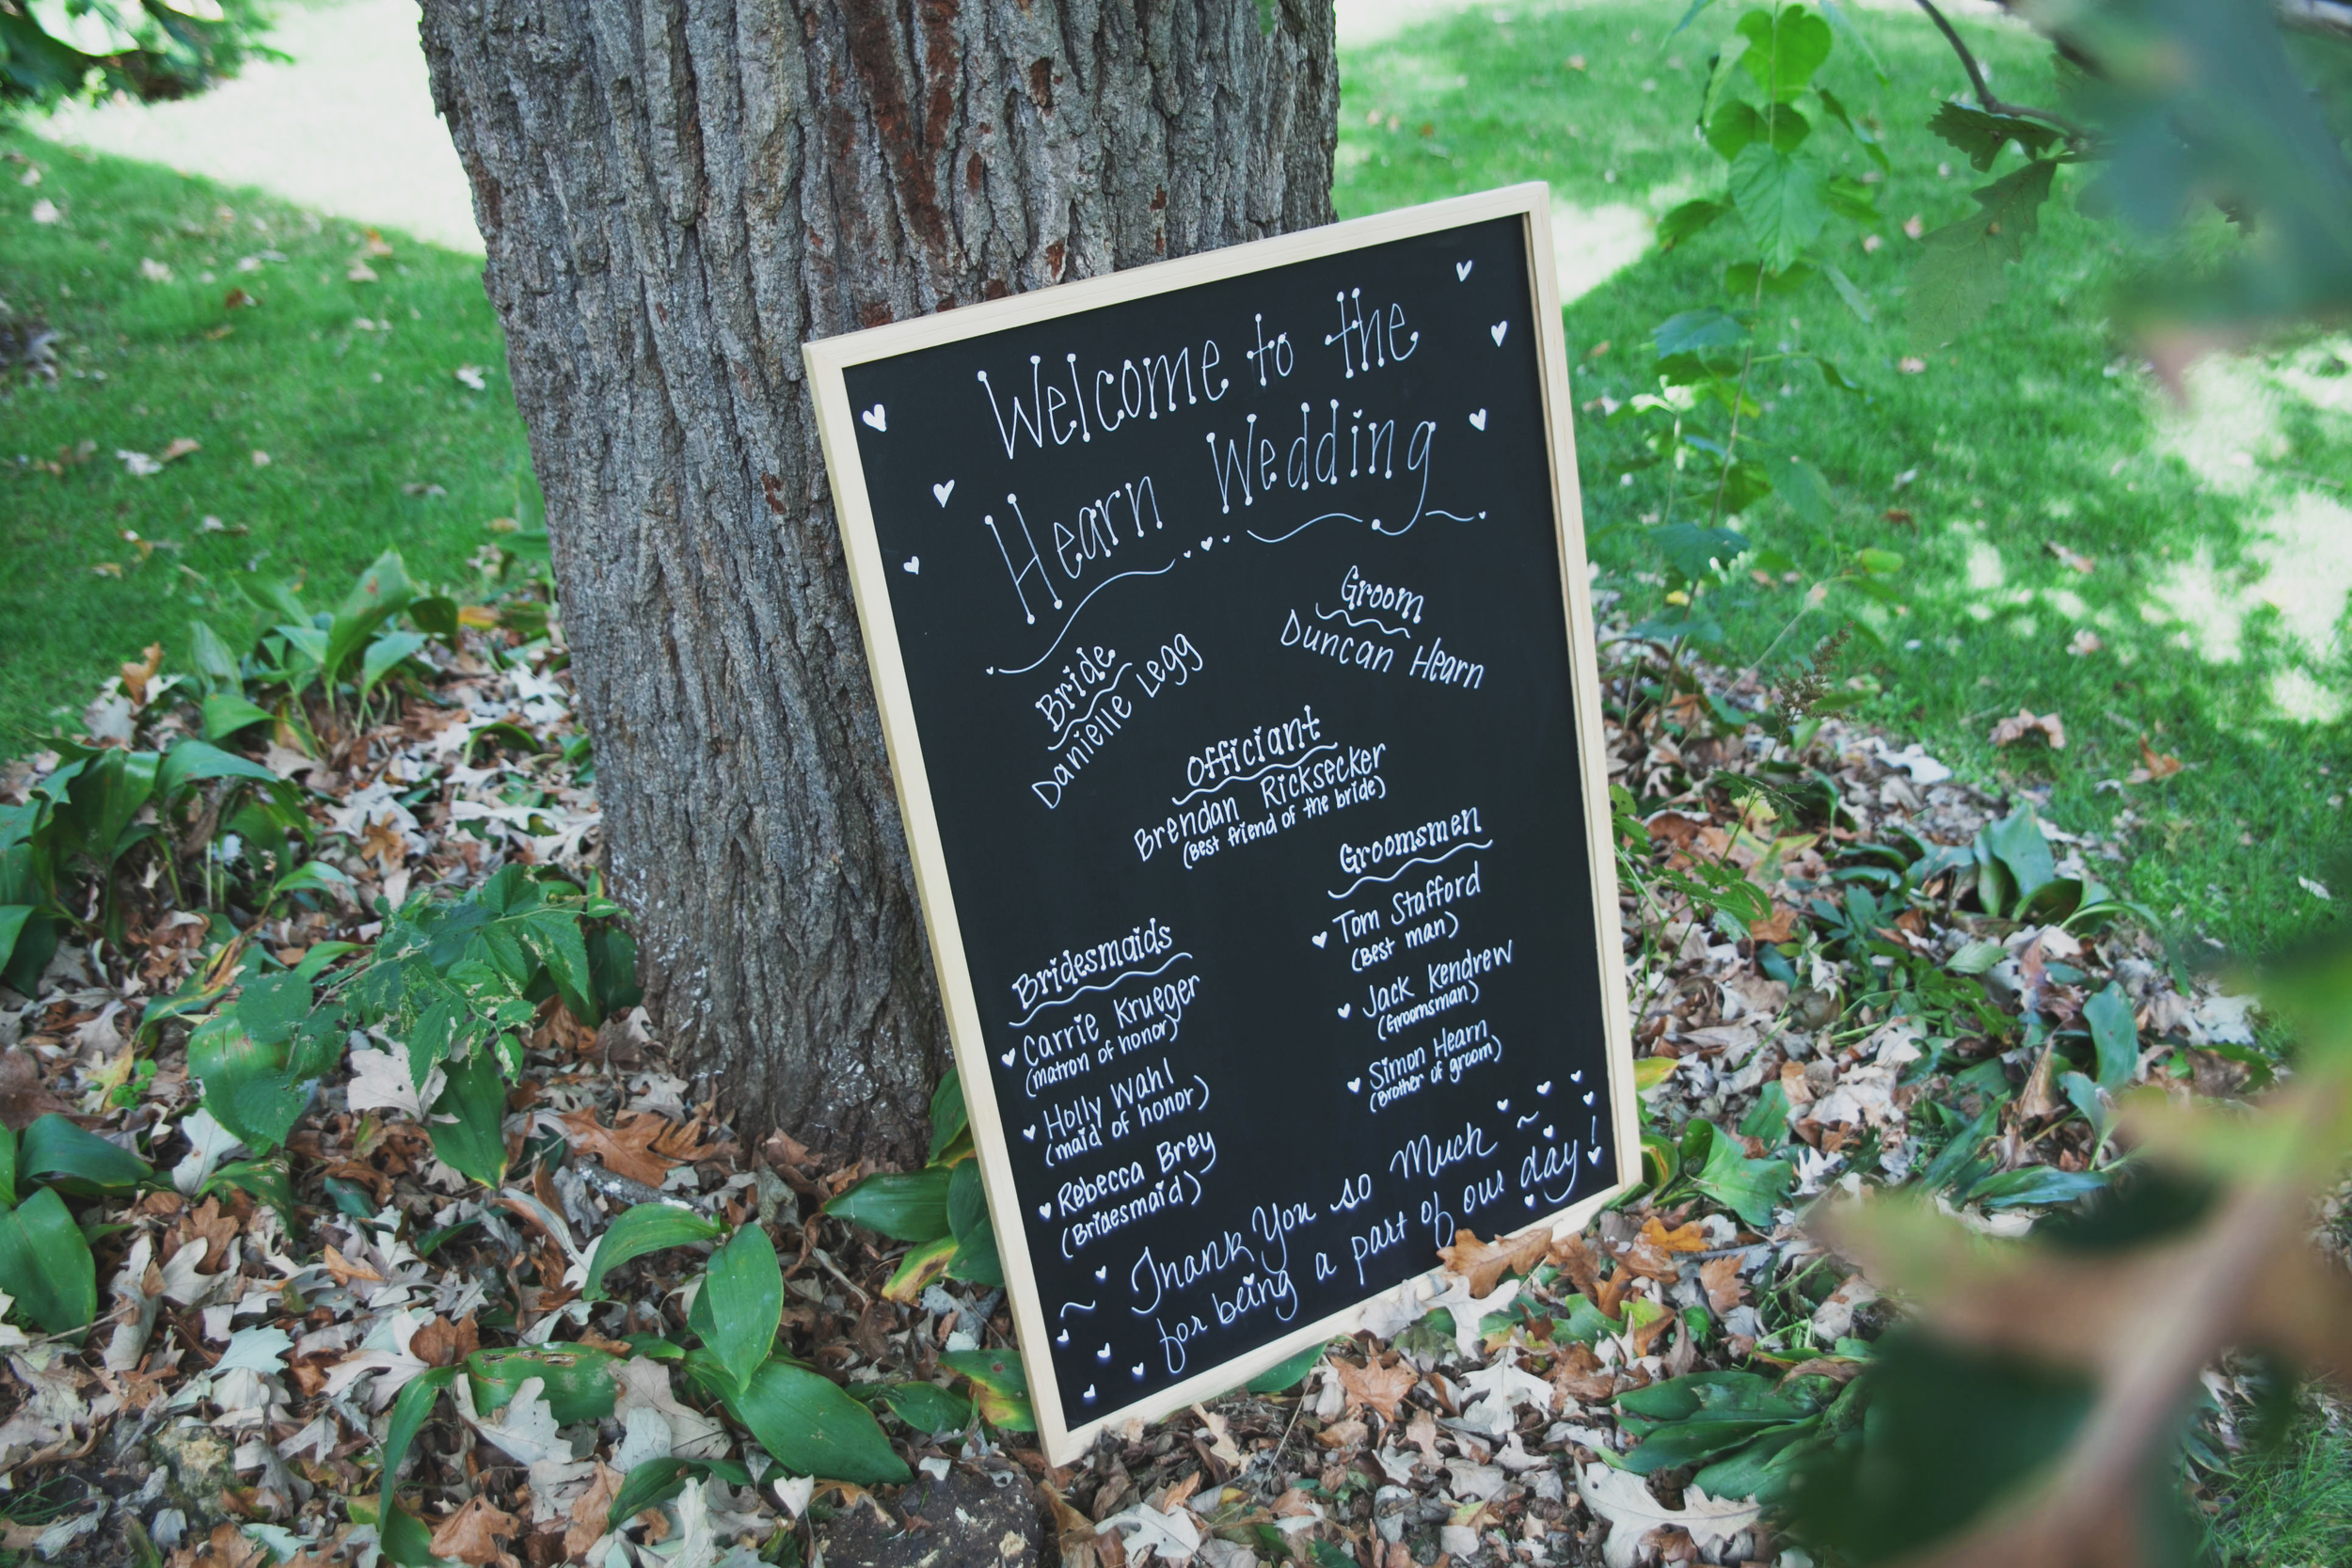 Welcome to the
Hearn Wedding
Bride
Danielle Legg
Groom
Duncan Hearn
Officiant
Brendan Ricksecker
(Best friend of the bride)
Bridesmaids
Carrie Krueger
(matron of honor)
Holly Wahl
(maid of honor)
Rebecca Brey
(Bridesmaid)
Groomsmen
Tom Stafford
(Best man)
Jack Kendrew
(Groomsman)
Simon Hearn
(Brother of groom)
~ Thank You so Much ~
for being a part of our day!